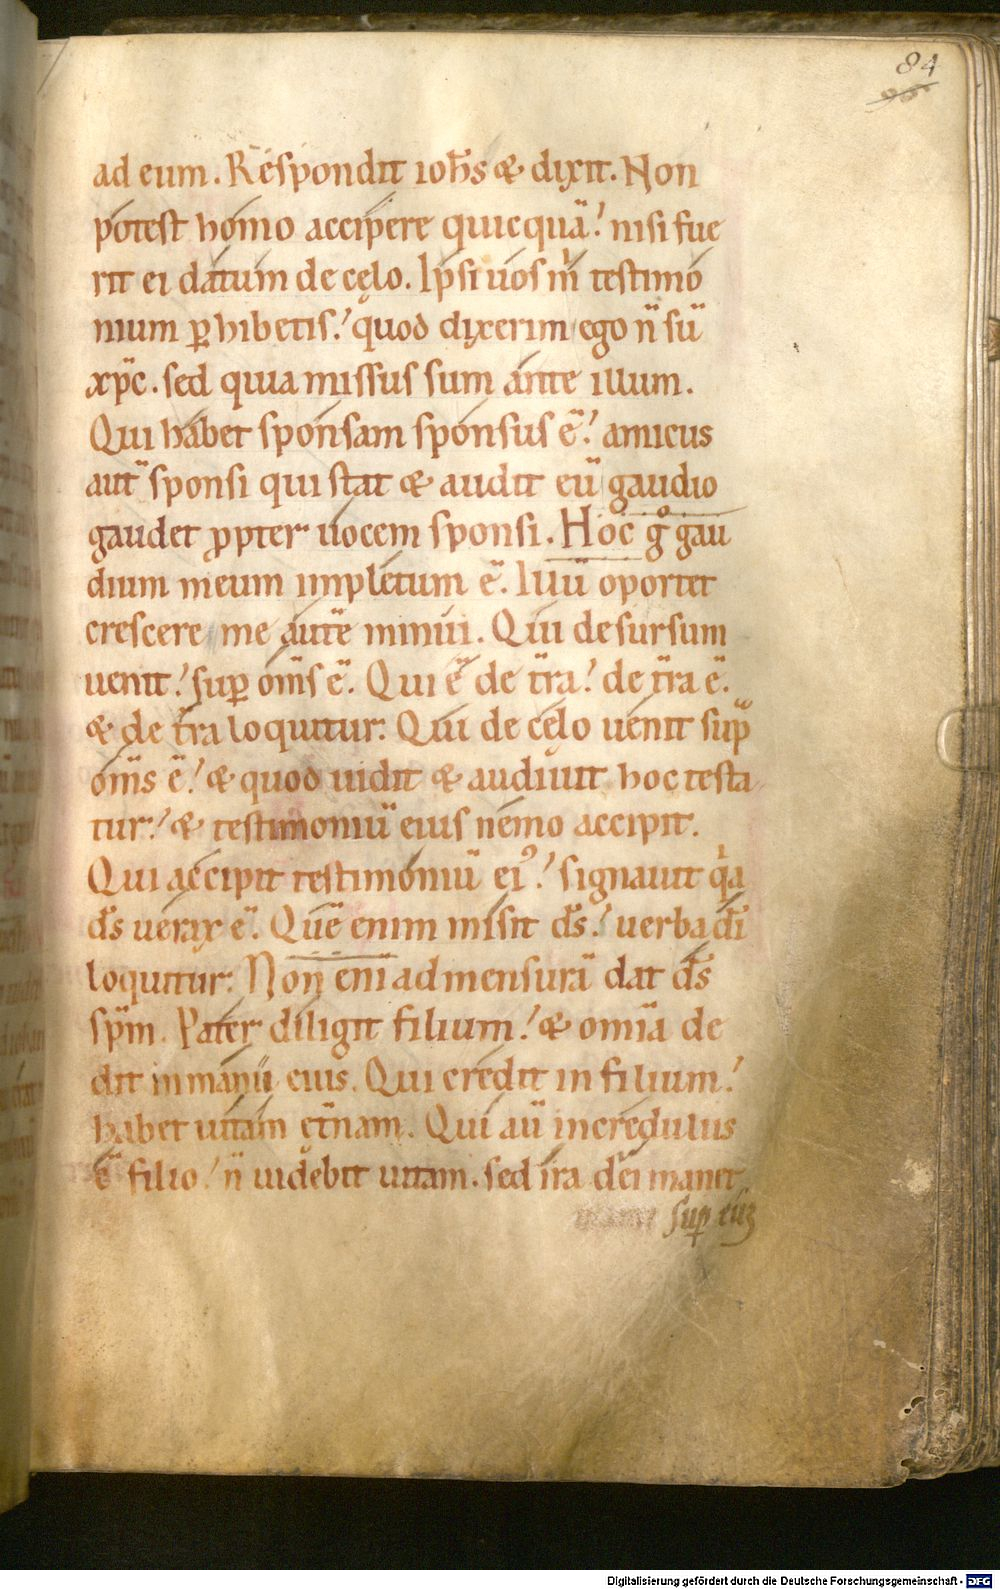 84
ad eum. Respondit ioħs & dixit. Non
potest homo accipere quicquā! nisi fue
rit ei datum de cęlo. Ipsi uos m̄ testimo
nium ꝑhibetis! quod dixerim ego n̄ sū
xp̄c. sed quia missus sum ante illum.
Qui habet sponsam sponsus ē! amicus
aut̄ sponsi qui stat & audit eū gaudio
gaudet ꝓpter uocem sponsi. Hoc gͦ gau
dium meum impletum ē. Illū oportet
crescere me autē minui. Qui desursum
uenit! suꝑ om̄s ē. Qui ē de t̄ra! de t̄ra ē.
& de t̄ra loquitur. Qui de cęlo uenit sup̄
om̄s ē! & quod uidit & audiuit hoc testa
tur! & testimoniū eius nemo accipit.
Qui accipit testimoniū ei᾿! signauit qͥa
d̄s uerax ē. Quē enim misit d̄s! uerba d̄i
loquitur. Non enī ad mensurā dat d̄s
sp̄m. Pater diligit filium! & om̄ia de
dit in manū eius. Qui credit in filium!
habet uitam ęt̄nam. Qui aū incredulus
ē filio! n̄ uidebit uitam. sed ira dei manet
suꝑ eūꝫ
Digitalisierung gefördert durch die Deutsche Forschungsgemeinschaft - DFG